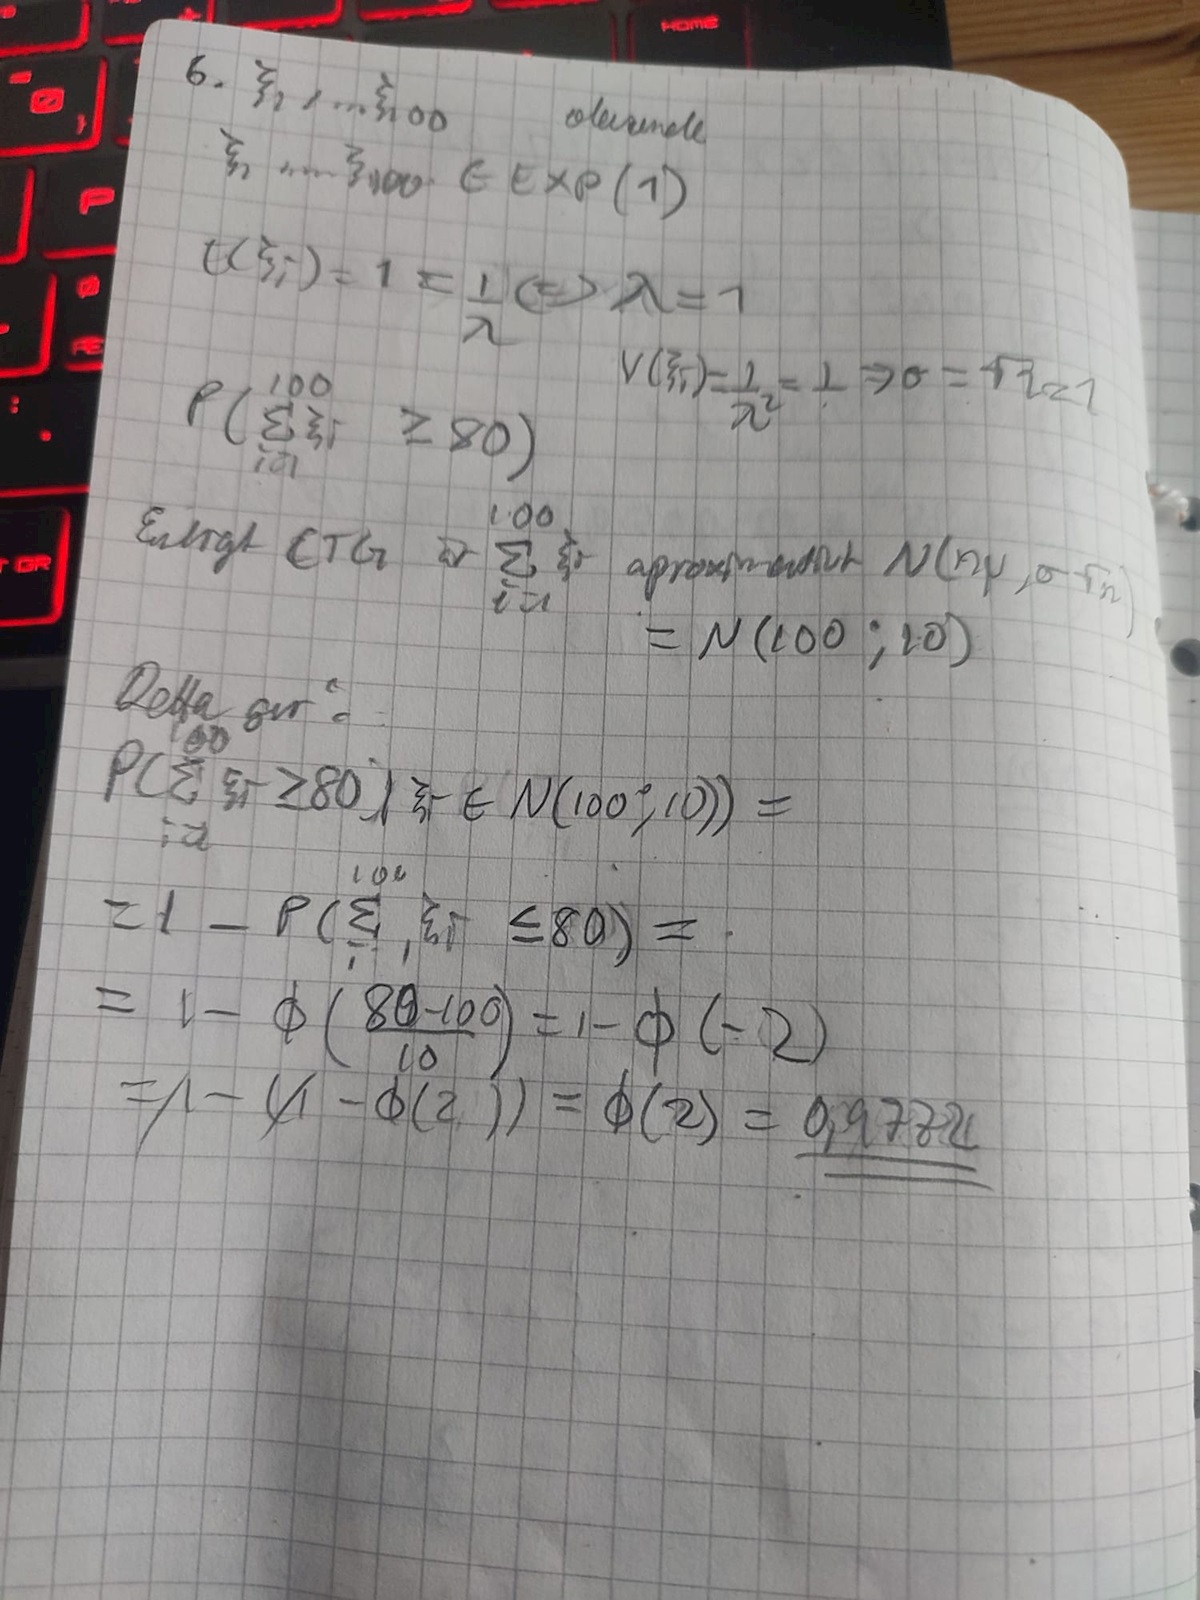 HOME
P
GR
6. ξ₁, ... ξ₁₀₀ oberoende
ξ₁ ... ξ₁₀₀ ∈ EXP(1)
E(ξᵢ) = 1 = 1/λ (=) λ = 1
V(ξᵢ) = 1/λ² = 1 => σ = √1 = 1
P(∑_{i=1}^{100} ξᵢ ≥ 80)
Enligt CTG är ∑_{i=1}^{100} ξᵢ aproximativt N(nμ, σ√n)
= N(100 ; 10)
Detta ger:
P(∑_{i=1}^{100} ξᵢ ≥ 80 | ξᵢ ∈ N(100; 10)) =
= 1 - P(∑_{i=1}^{100} ξᵢ ≤ 80) =
= 1 - ϕ((80-100)/10) = 1 - ϕ(-2)
= 1 - (1 - ϕ(2)) = ϕ(2) = 0,9772